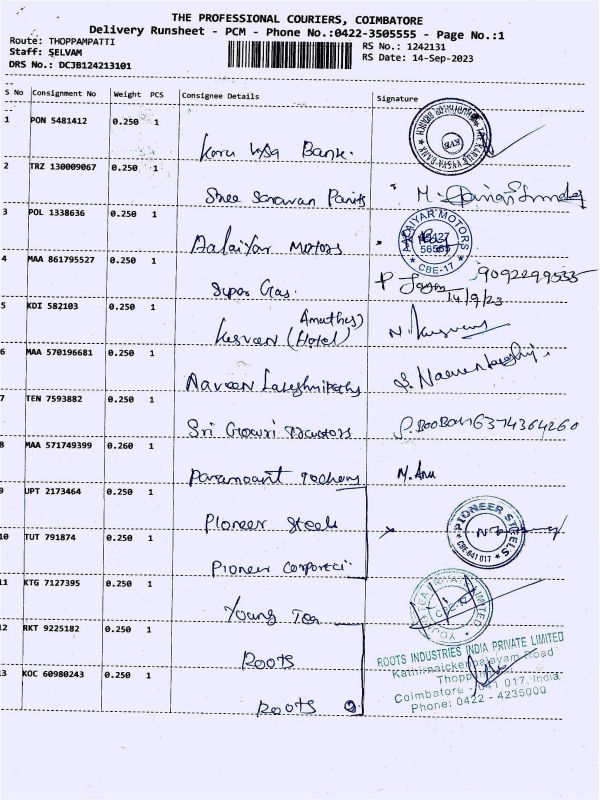 THE PROFESSIONAL COURIERS, COIMBATORE
Delivery Runsheet - PCM - Phone No.:0422-3505555 - Page No.:1
Route: THOPPAMPATTI
RS No.: 1242131
Staff: SELVAM
RS Date: 14-Sep-2023
DRS No.: DCJB124213101
S No Consignment No Weight PCS Consignee Details Signature
1 PON 5481412 0.250 1
Karu Vysa Bank.
2 TRZ 130009067 0.250 1
Shree Saravan Paints M.
3 POL 1338636 0.250 1
Aalaiyar Motors
AALAIYAR MOTORS
56565
CBE-17
4 MAA 861795527 0.250 1
Super Gas. 9092299535
14/9/23
5 KDI 582103 0.250 1
Kesvan (Hotel) N.
6 MAA 570196681 0.250 1
Naveen
7 TEN 7593882 0.250 1
Sri Gowri 6374364260
8 MAA 571749399 0.260 1
Paramount M. Anu
9 UPT 2173464 0.250 1
Pioneer Steels
PIONEER STEELS
CBE-641 017
10 TUT 791874 0.250 1
Pioneer
11 KTG 7127395 0.250 1
Young
12 RKT 9225182 0.250 1
ROOTS
ROOTS INDUSTRIES INDIA PRIVATE LIMITED
Kathirnaickenpalayam Road
13 KOC 60980243 0.250 1
Coimbatore - 641 017. India
Phone: 0422 - 4235000
ROOTS